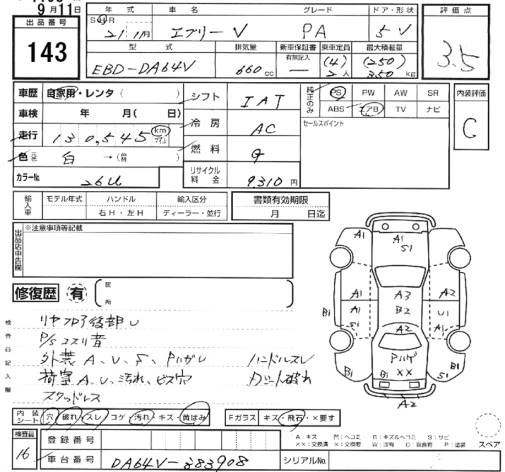 9月11日
出品番号
143
年式 車名 グレード ドア・形状
S H R
21/1月 エブリーV PA 5V
型式 排気量 新車保証書 乗車定員 最大積載量
有無記入 (4) (250)
EBD-DA64V 660cc — 2人 350kg
評価点
3.5
車歴 自家用・レンタ( )
車検 年 月(日)
走行 130,545 km マイル
色 白 →( )
カラーNo. 26U
シフト IAT
冷房 AC
燃料 G
リサイクル料金 9,310円
純正のみ
PS PW AW SR
ABS エアB TV ナビ
セールスポイント
内装評価
C
輸入車 モデル年式 ハンドル 輸入区分
右H・左H ディーラー・並行
書類有効期限
月 日迄
出品店申告欄
※注意事項等記載
修復歴 有
箇所
検査員記入欄
リヤフロア後部U
P/Sコスリ有
外装A、U、S、Pハガレ ハンドルスレ
荷室A、U、汚れ、ビス穴 Dシート破れ
スタッドレス
A1 A1 S1
A2 A3 A2
B1 A1 S1 B2 U1 B1
A2
B1 Pハゲ ×× B1 S1
A2
内装シート 穴 破れ スレ コゲ 汚れ キズ・黄ばみ
Fガラス キズ・飛石・×要す
検査員
16
登録番号
車台番号 DA64V-383908
シリアルNo.
スペア